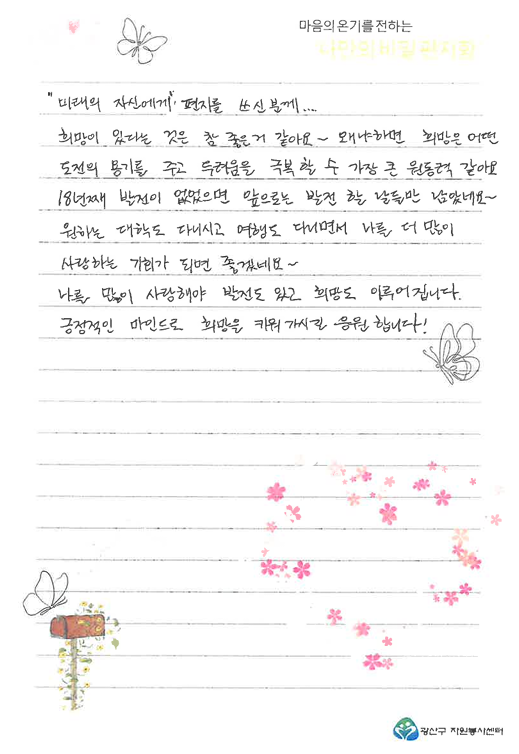 마음의 온기를 전하는
나만의 비밀 편지함
"미래의 자신에게" 편지를 쓰신 분께...
희망이 있다는 것은 참 좋은거 같아요~ 왜냐하면 희망은 어떤
도전의 용기를 주고 두려움을 극복 할 수 가장 큰 원동력 같아요
18년째 발전이 없었으면 앞으로는 발전 할 날들만 남았네요~
원하는 대학도 다니시고 여행도 다니면서 나를 더 많이
사랑하는 기회가 되면 좋겠네요~
나를 많이 사랑해야 발전도 있고 희망도 이루어집니다.
긍정적인 마인드로 희망을 키워가시길 응원합니다!
광산구 자원봉사센터